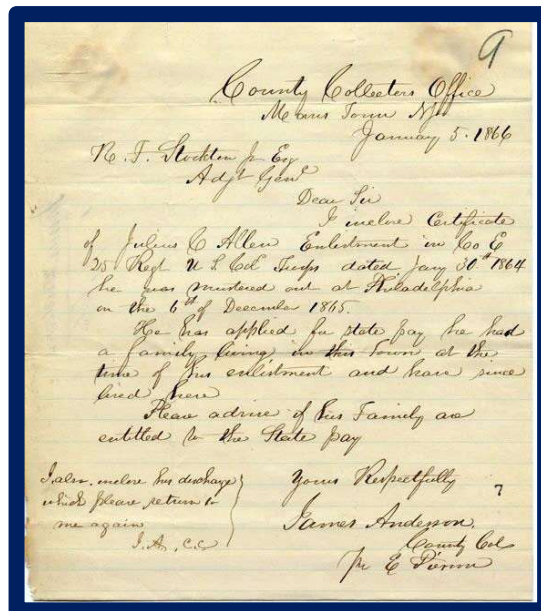 9
County Collectors Office
Morris Town NJ
January 5. 1866
R. F. Stockton Jr Esq
Adjt Genl
Dear Sir
I inclose Certificate
of Julius C Allen Enlistment in Co E
25 Regt U S Cold Troops dated Jany 30th 1864
he was mustered out at Philadelphia
on the 6th of December 1865.
He has applied for state pay he had
a family living in this Town at the
time of his enlistment and have since
lived here
Please advise if his Family are
entitled to the State pay
Yours Respectfully
James Anderson.
County Col
pr E Pierson
I also inclose his discharge
which please return to
me again
J. A. C.C